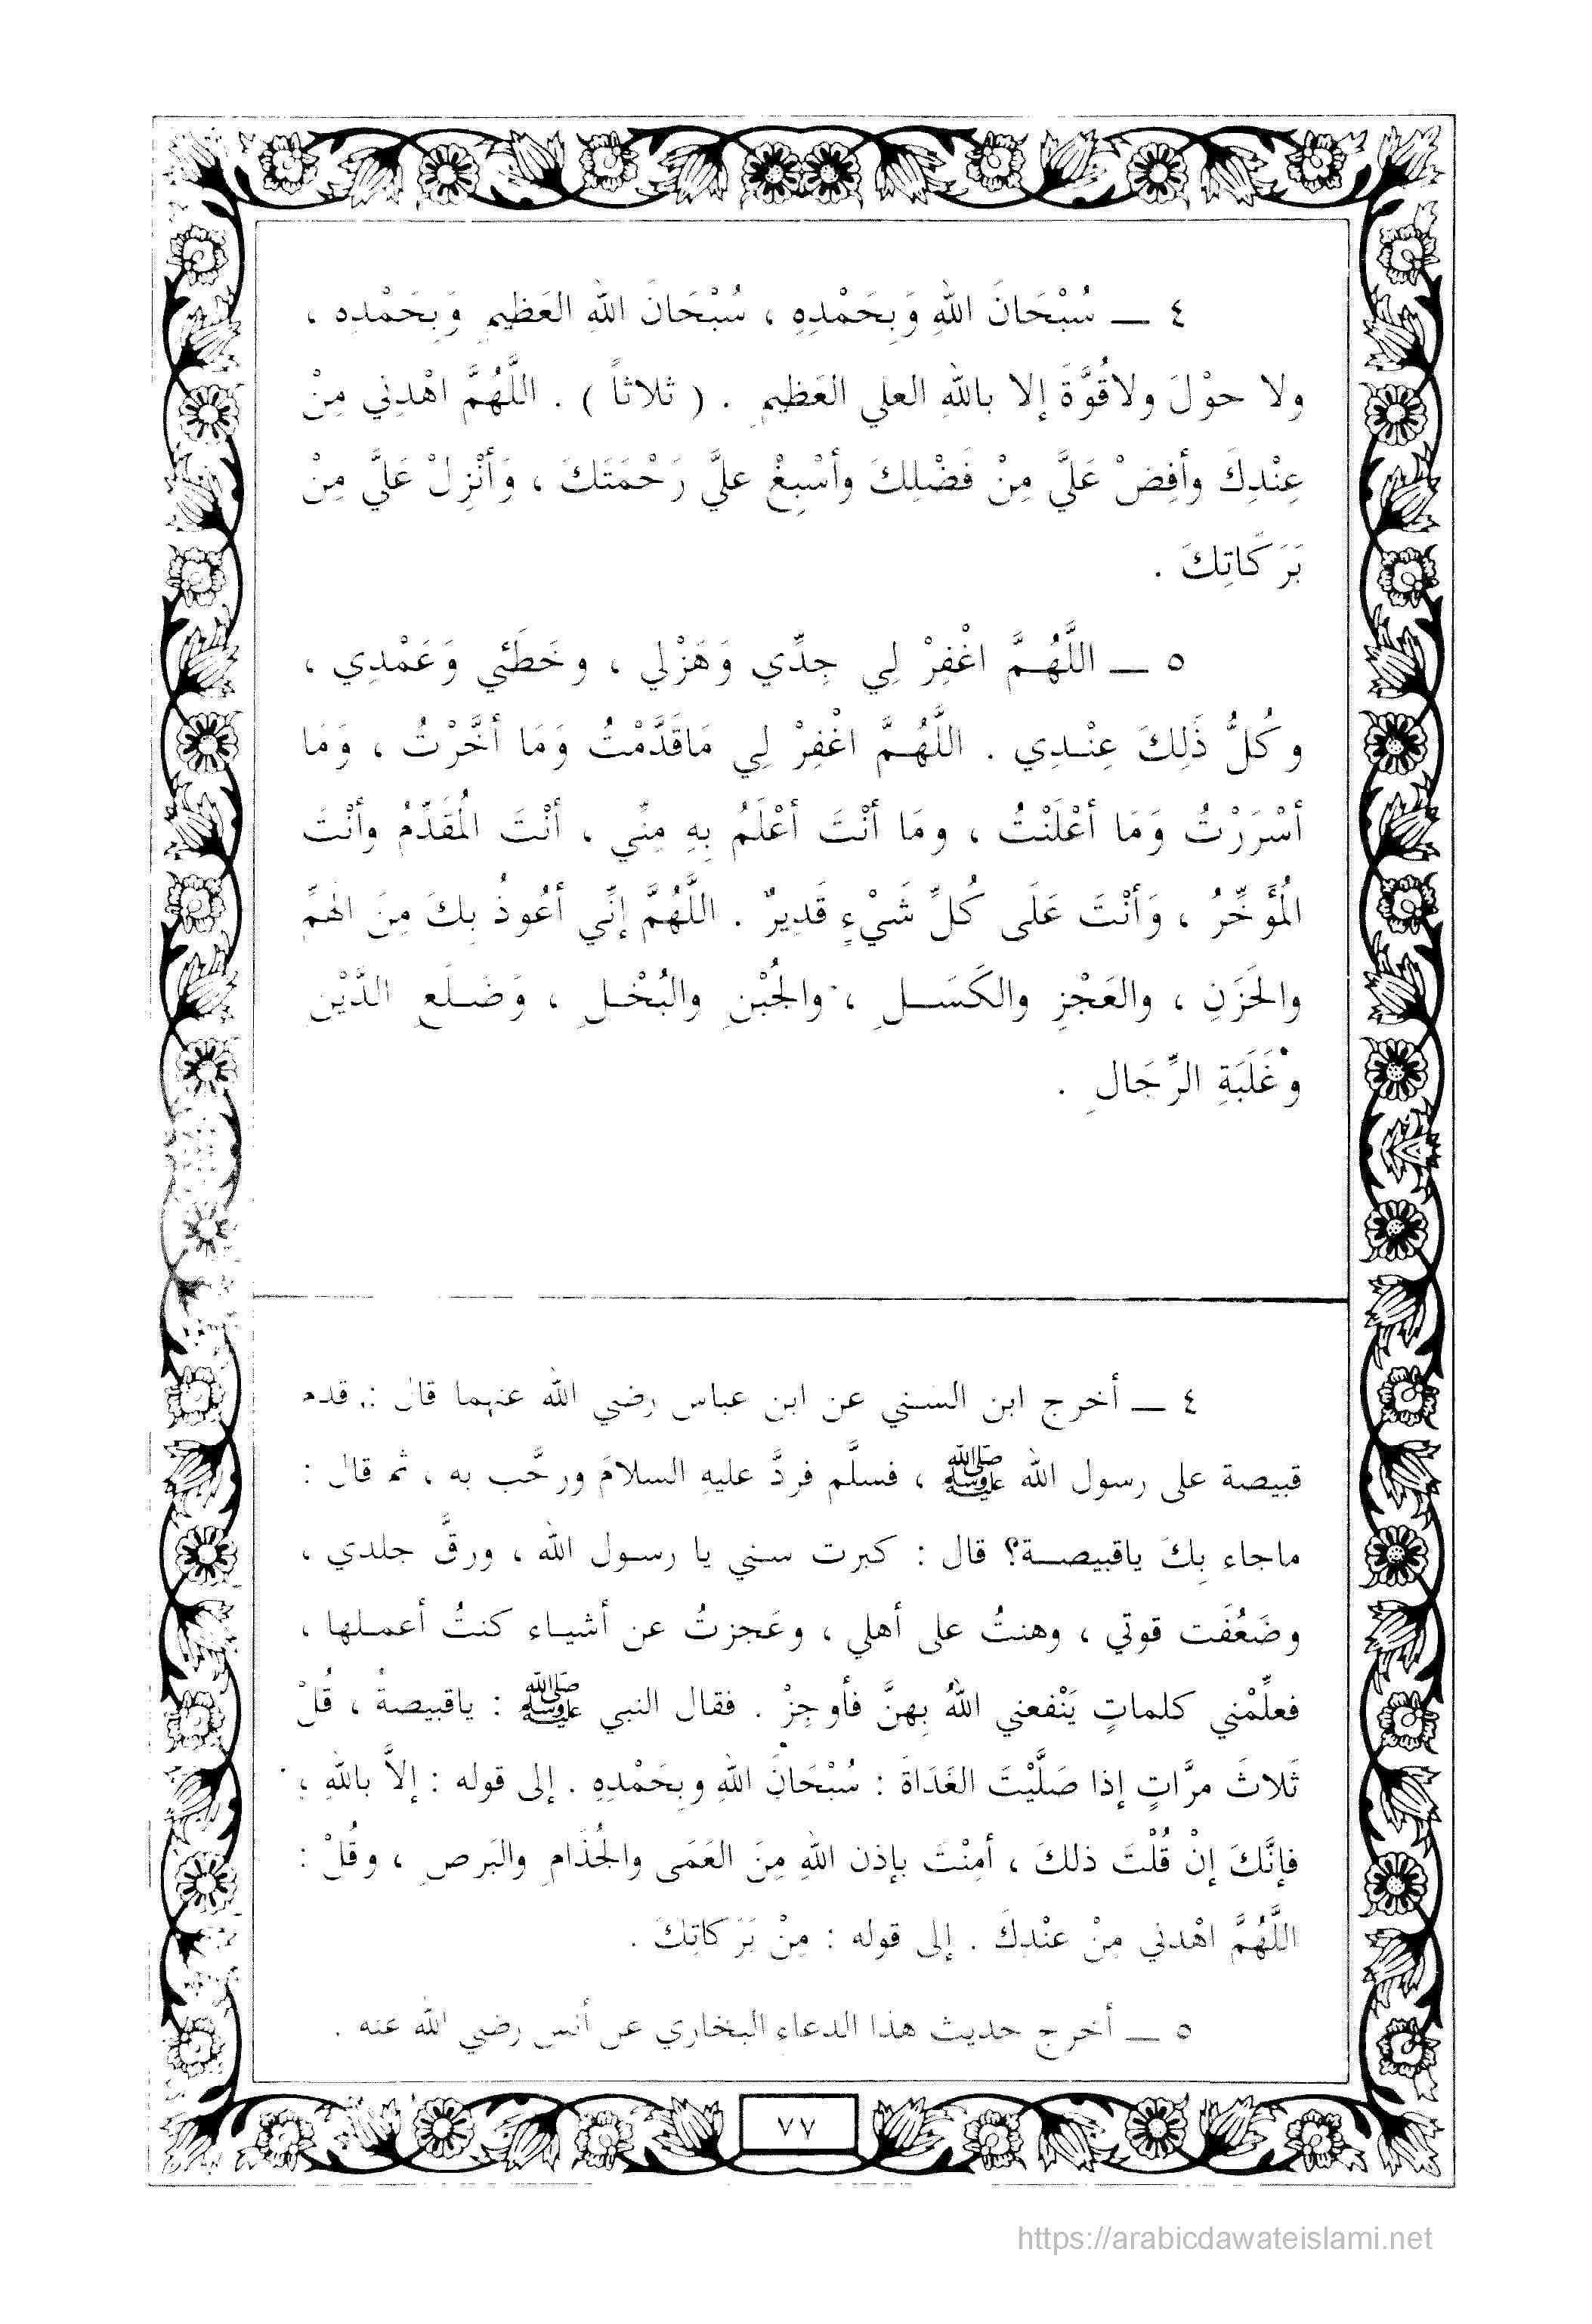 ٤ ــ سُبْحَانَ اللهِ وَبِحَمْدِهِ ، سُبْحَانَ اللهِ العَظِيمِ وَبِحَمْدِه ،
ولا حوْلَ ولاقُوَّةَ إلا باللهِ العلي العَظِيمِ . ( ثلاثاً ) . اللَّهُمَّ اهْدِني مِنْ
عِنْدِكَ وأفِضْ عَلَيَّ مِنْ فَضْلِكَ وأسْبِغْ عليَّ رَحْمَتَكَ ، وَأنْزِلْ عَلَيَّ مِنْ
بَرَكَاتِكَ .
٥ ــ اللَّهُمَّ اغْفِرْ لِي جِدِّي وَهَزْلي ، وخَطَئي وَعَمْدِي ،
وكُلُّ ذَلِكَ عِنْدِي . اللَّهُمَّ اغْفِرْ لِي مَاقَدَّمْتُ وَمَا أخَّرْتُ ، وَمَا
أسْرَرْتُ وَمَا أعْلَنْتُ ، ومَا أنْتَ أعْلَمُ بِهِ مِنِّي ، أنْتَ المُقَدِّمُ وأنْتَ
المُؤَخِّرُ ، وَأنْتَ عَلَى كُلِّ شَيْءٍ قَدِيرٌ . اللَّهُمَّ إنِّي أعُوذُ بِكَ مِنَ الهَمِّ
والحَزَنِ ، والعَجْزِ والكَسَلِ ، والجُبْنِ والبُخْلِ ، وَضَلَعِ الدَّيْنِ
وَغَلَبَةِ الرِّجَالِ .
٤ ــ أخرج ابن السني عن ابن عباس رضي الله عنهما قال : قدم
قبيصة على رسول الله ﷺ ، فسلَّم فردَّ عليهِ السلامَ ورحَّب به ، ثم قال :
ماجاء بِكَ ياقبيصة؟ قال : كبرت سني يا رسول الله ، ورقَّ جلدي ،
وضَعُفَت قوتي ، وهنتُ على أهلي ، وعَجزتُ عن أشياء كنتُ أعملها ،
فعلِّمْني كلماتٍ يَنْفعني اللهُ بِهنَّ فأوجِزْ . فقال النبي ﷺ : ياقبيصةُ ، قُلْ
ثَلاثَ مرَّاتٍ إذا صَلَّيْتَ الغَدَاةَ : سُبْحَانَ اللهِ وبِحَمْدِهِ . إلى قوله : إلاَّ باللهِ ،
فإنَّكَ إنْ قُلْتَ ذلكَ ، أمِنْتَ بإذن اللهِ مِنَ العَمَى والجُذَامِ والبَرصِ ، وقُلْ :
اللَّهُمَّ اهْدني مِنْ عنْدِكَ . إلى قوله : مِنْ بَرَكاتِكَ .
٥ ــ أخرج حديث هذا الدعاء البخاري عن أنس رضي الله عنه .
٧٧
https://arabicdawateislami.net